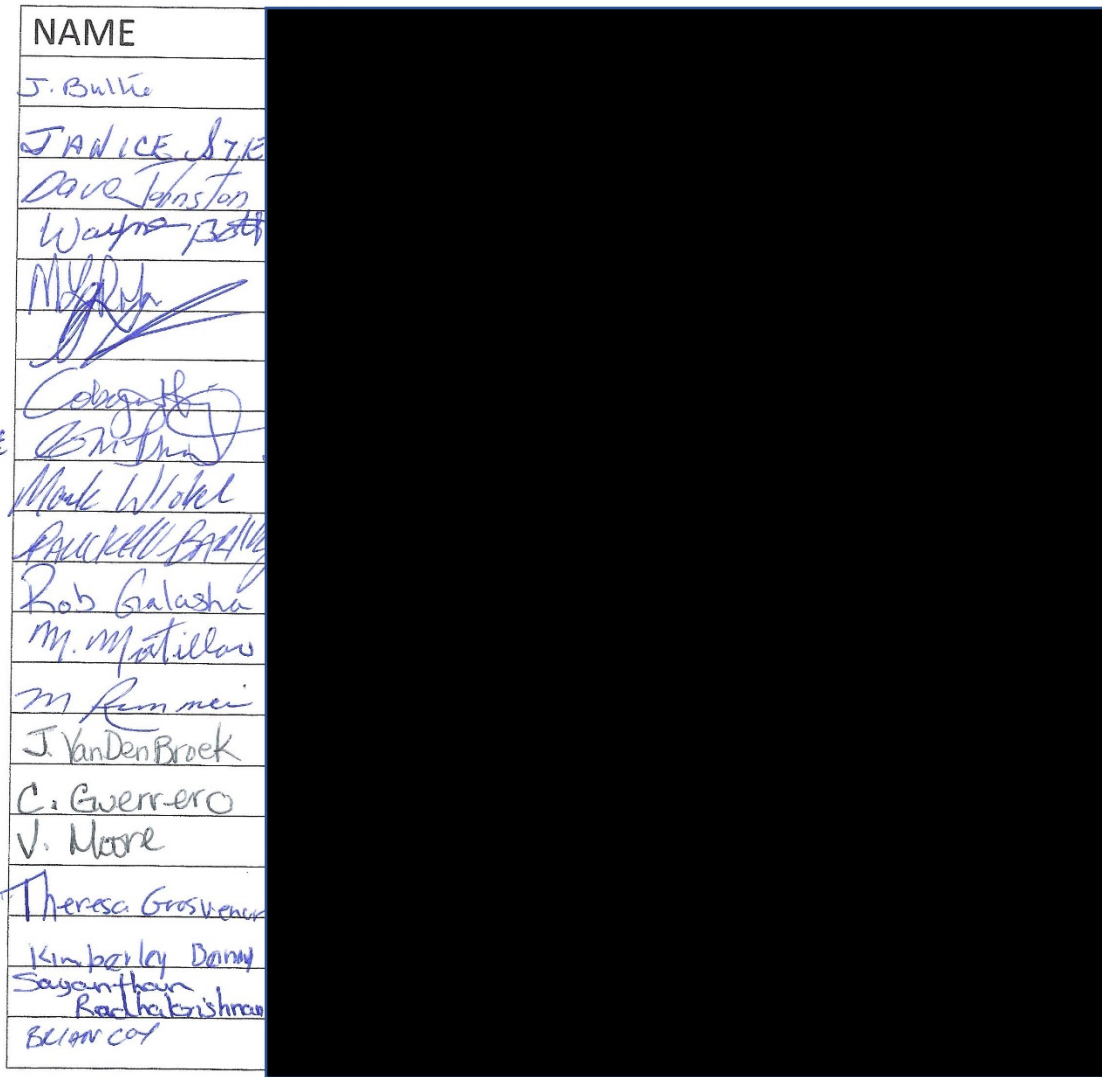 NAME
J. Bultie
JANICE STE
Dave Johnston
Wayne Both
Mark Wlokel
Rob Galasha
M. Matillar
M Rummei
J. VanDenBroek
C. Guerrero
V. Moore
Theresa Grosvenor
Kimberley Denny
Sayanthan
Radhakrishnan
BRIAN COY